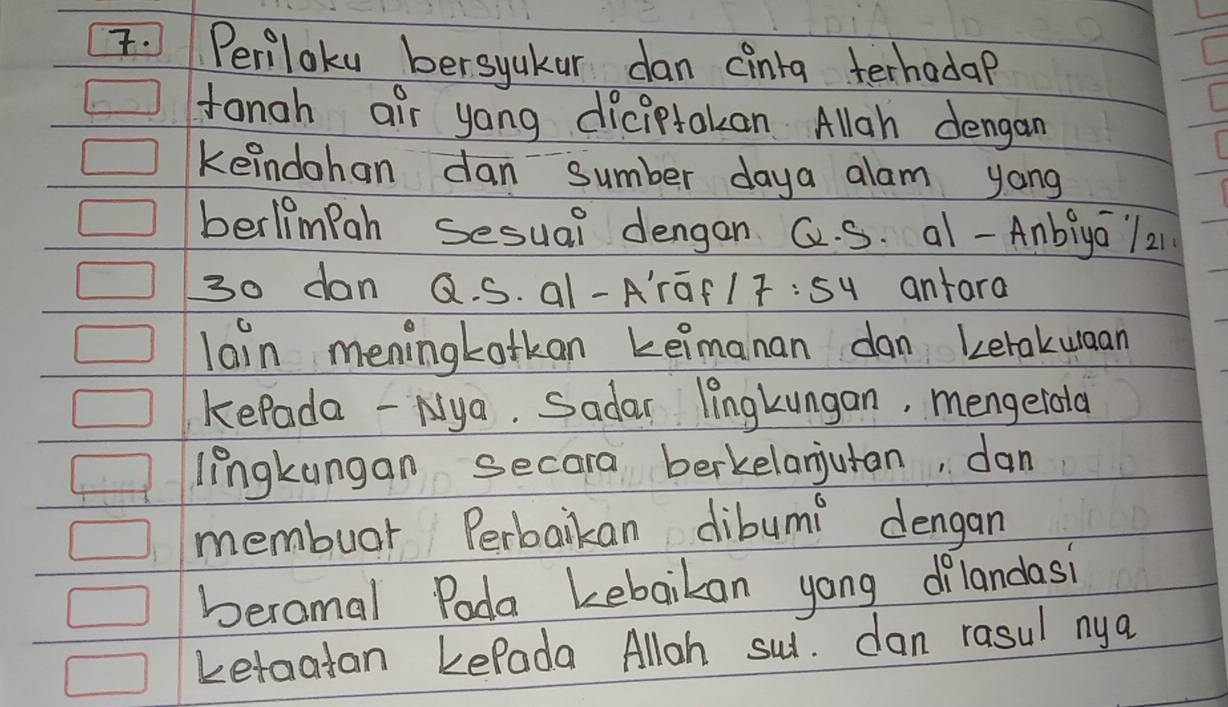 7. Perilaku bersyukur dan cinta terhadap
tanah air yang diciptakan Allah dengan
keindahan dan sumber daya alam yang
berlimpah sesuai dengan Q.S. al - Anbiyā'/21:
30 dan Q.S. al - A'rāf/7:54 antara
lain meningkatkan keimanan dan ketakwaan
kepada - Nya. Sadar lingkungan, mengelola
lingkungan secara berkelanjutan, dan
membuat Perbaikan dibumi dengan
beramal Pada kebaikan yang dilandasi
ketaatan kepada Allah swt. dan rasul nya